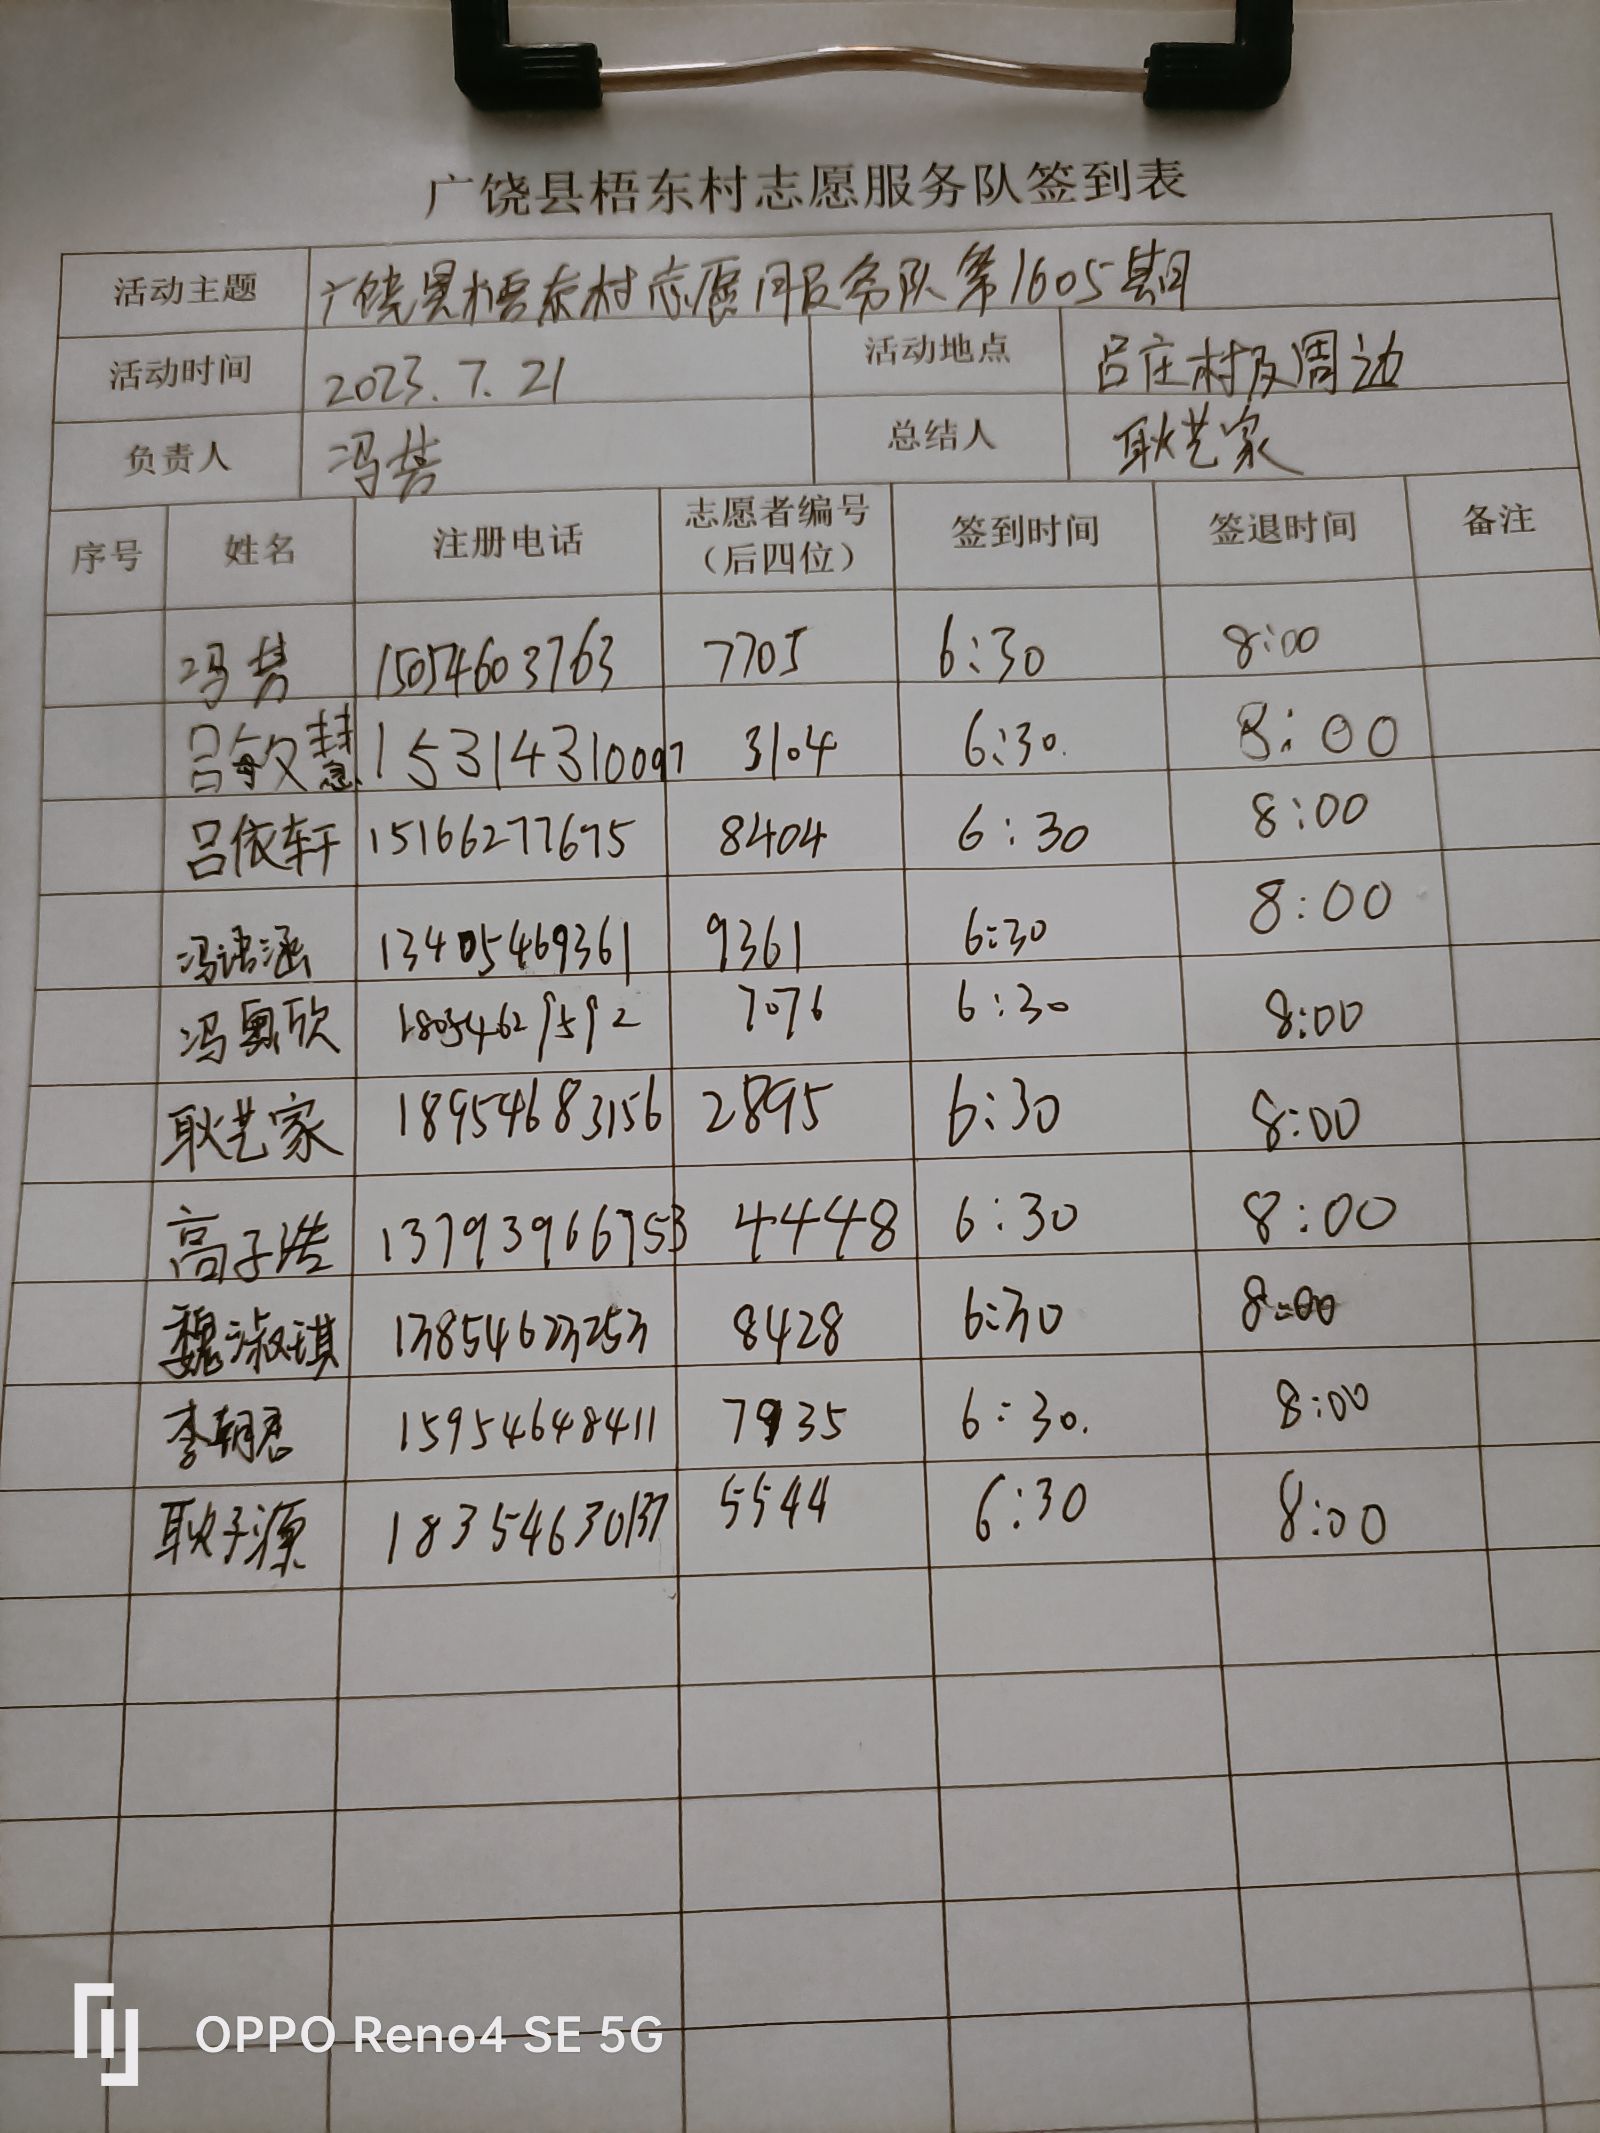 广饶县梧东村志愿服务队签到表
活动主题 广饶县梧东村志愿服务队第1605期
活动时间 2023.7.21 活动地点 吕庄村及周边
负责人 冯 总结人 耿艺家
序号 姓名 注册电话 志愿者编号（后四位） 签到时间 签退时间 备注
冯 15054603763 7705 6:30 8:00
吕敏慧 15314310097 3104 6:30. 8:00
吕依轩 15166277675 8404 6:30 8:00
冯语涵 13405469361 9361 6:30 8:00
冯奥欣 18054629592 7076 6:30 8:00
耿艺家 18954683156 2895 6:30 8:00
高子浩 13793966753 4448 6:30 8:00
魏淑琪 13854623253 8428 6:30 8:00
李朝君 15954648411 7935 6:30. 8:00
耿子源 18354630137 5544 6:30 8:00
OPPO Reno4 SE 5G